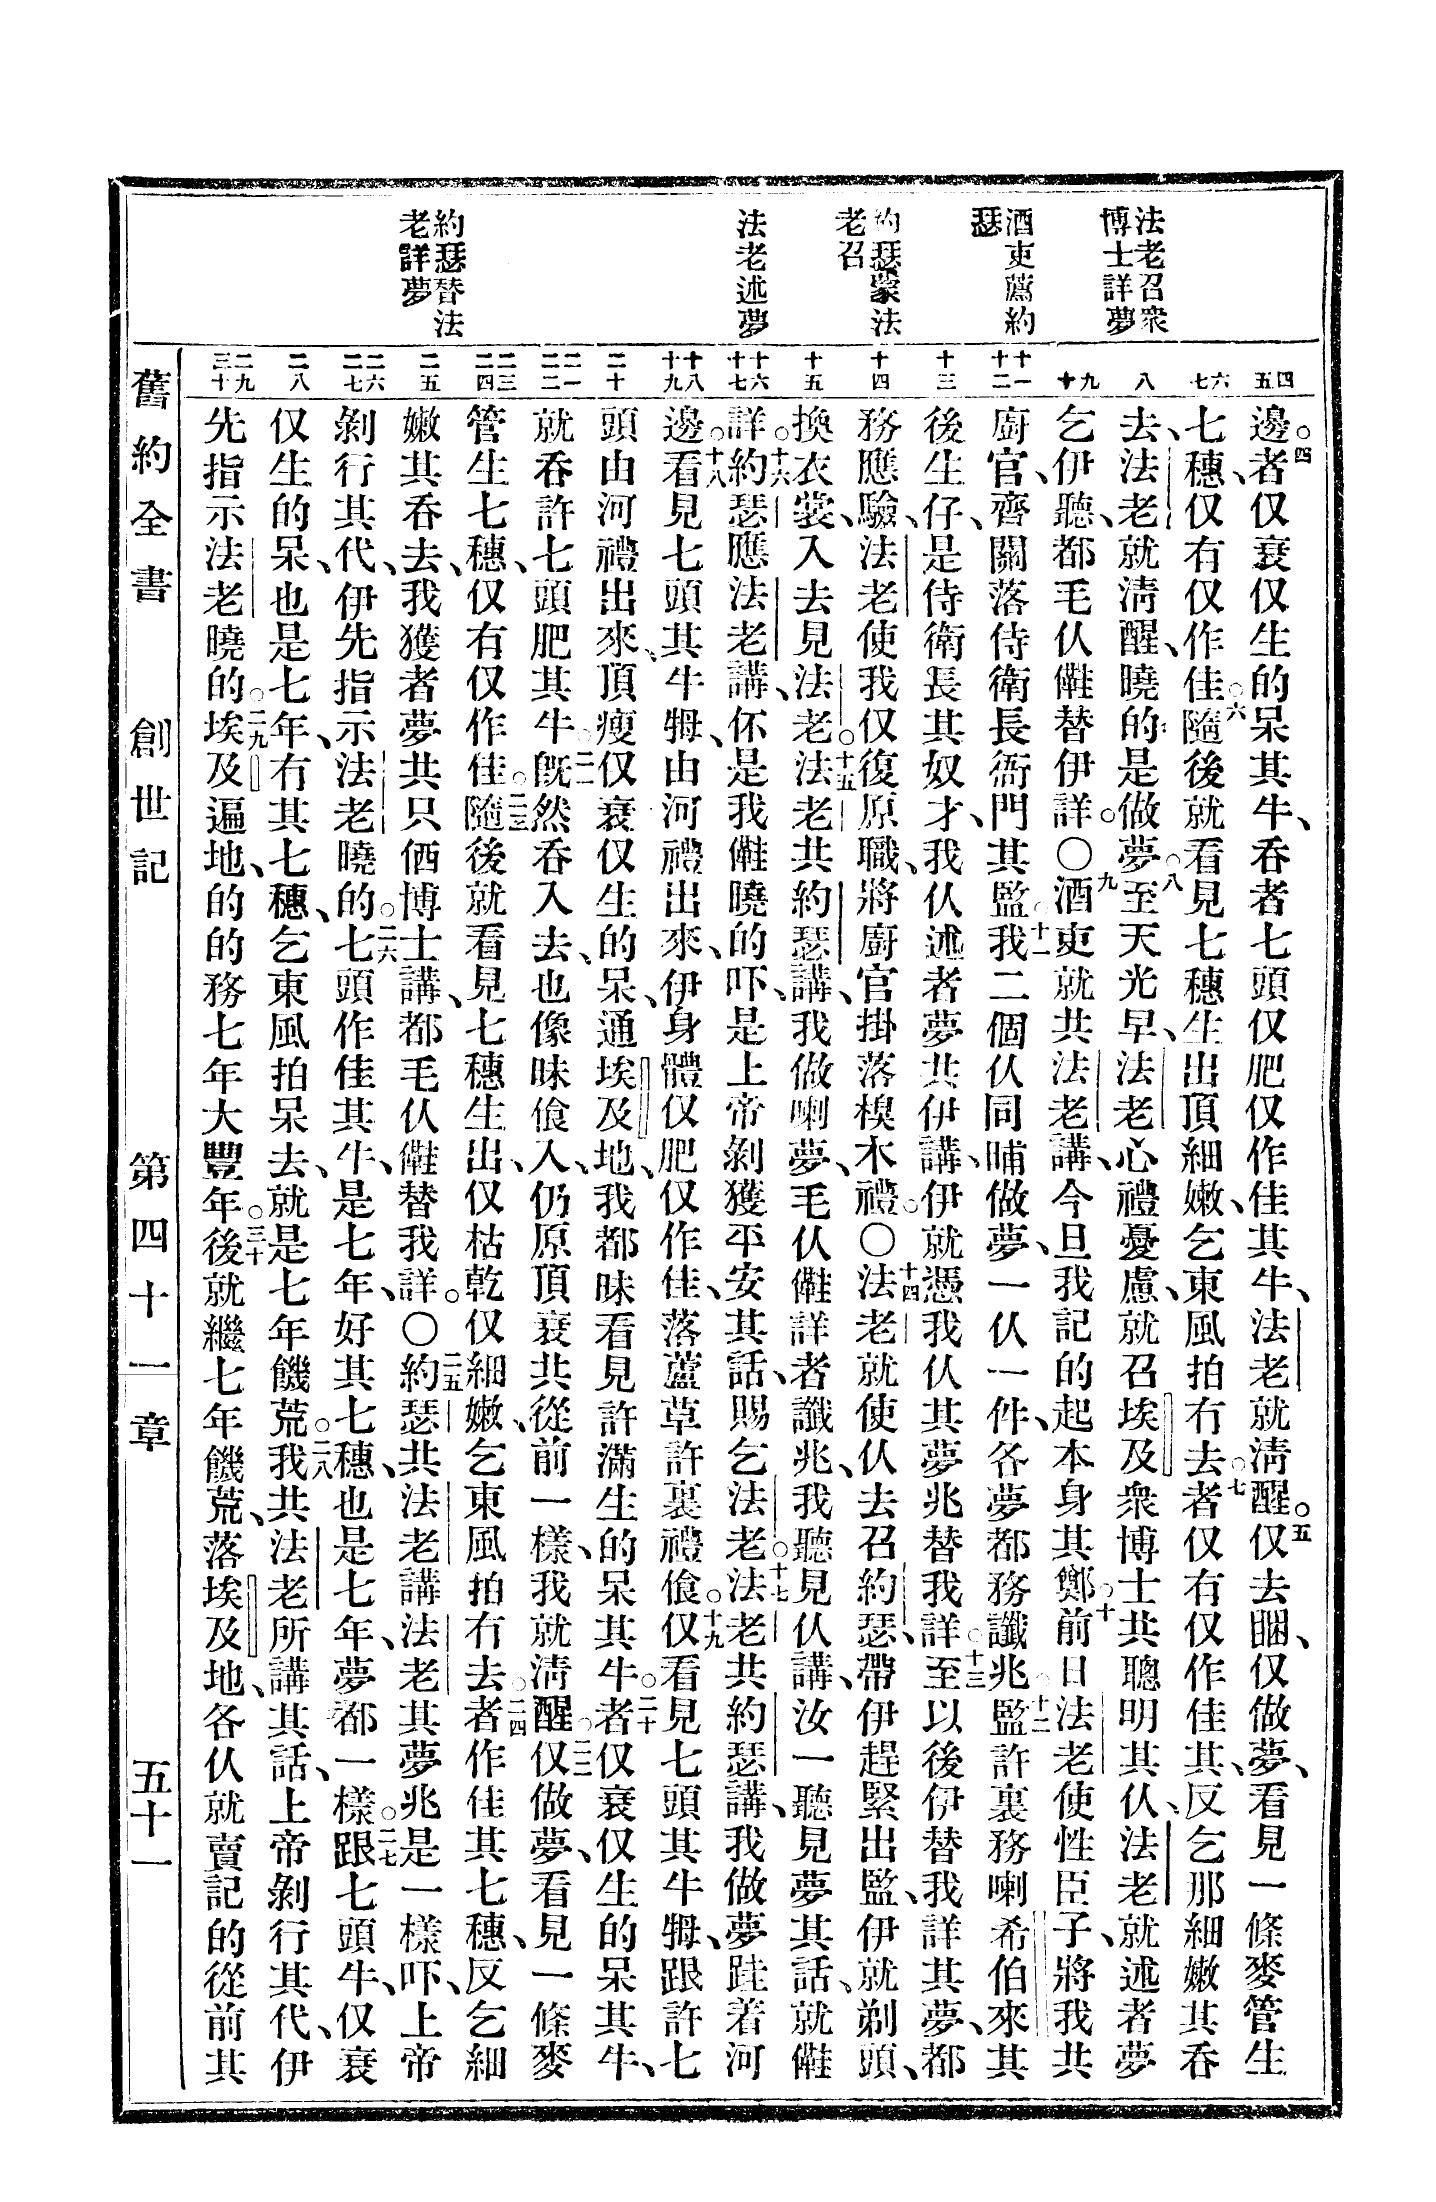 法老召衆
博士詳夢
酒吏薦約
瑟
約瑟蒙法
老召
法老述夢
約瑟替法
老詳夢
四五
六七
八
九十
十一十二
十三
十四
十五
十六十七
十八十九
二十
二一二二
二三二四
二五
二六二七
二八
二九三十
邊、○四者仅衰仅生的呆其牛、吞者七頭仅肥仅作佳其牛、法老就淸醒。○五仅去睏、仅做夢、看見一條麥管生
七穗、仅有仅作佳○六隨後就看見七穗生出頂細嫩、乞東風拍冇去○七者仅有仅作佳其、反乞那細嫩其吞
去、法老就淸醒、曉的是做夢○八至天光早、法老心禮憂慮、就召埃及衆博士共聰明其仈、法老就述者夢
乞伊聽、都毛仈雝替伊詳。○九酒吏就共法老講、今旦我記的起本身其鄭○十前日法老使性臣子、將我共
廚官、齊關落侍衛長衙門其監○十一我二個仈同晡做夢、一仈一件、各夢都務讖兆○十二監許裏務喇希伯來其
後生仔、是侍衛長其奴才、我仈述者夢共伊講、伊就憑我仈其夢兆替我詳○十三至以後伊替我詳其夢、都
務應驗、法老使我仅復原職、將廚官掛落模木禮。○十四法老就使仈去召約瑟、帶伊趕緊出監、伊就剃頭、
換衣裳、入去見法老○十五法老共約瑟講、我做喇夢、毛仈雝詳者讖兆、我聽見仈講、汝一聽見夢其話、就雝
詳○十六約瑟應法老講、伓是我雝曉的吓、是上帝剝獲平安其話、賜乞法老○十七法老共約瑟講、我做夢跬着河
邊○十八看見七頭其牛姆、由河禮出來、伊身體仅肥仅作佳、落蘆草許裏禮飡○十九仅看見七頭其牛姆、跟許七
頭由河禮出來、頂瘦仅衰仅生的呆、通埃及地、我都昧看見許滿生的呆其牛○二十者仅衰仅生的呆其牛、
就吞許七頭肥其牛○二一旣然吞入去、也像昧飡入、仍原頂衰共從前一樣、我就淸醒○二二仅做夢、看見一條麥
管生七穗、仅有仅作佳○二三隨後就看見七穗生出、仅枯乾仅細嫩、乞東風拍冇去○二四者作佳其七穗、反乞細
嫩其吞去、我獲者夢共只伵博士講、都毛仈雝替我詳。○二五約瑟共法老講、法老其夢兆是一樣吓、上帝
剝行其代、伊先指示法老曉的○二六七頭作佳其牛、是七年、好其七穗、也是七年、夢都一樣○二七跟七頭牛、仅衰
仅生的呆、也是七年、冇其七穗、乞東風拍呆去、就是七年饑荒○二八我共法老所講其話、上帝剝行其代、伊
先指示法老曉的○二九埃及遍地、的的務七年大豐年○三十後就繼七年饑荒、落埃及地、各仈就賣記的從前其
舊約全書　創世記　第四十一章　五十一